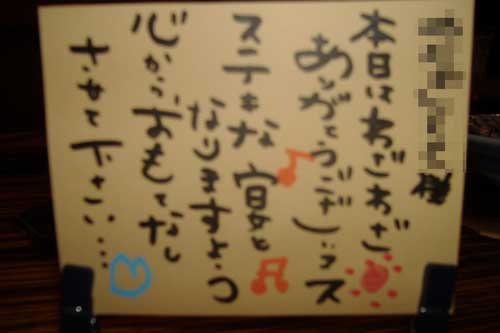 様
本日はわざわざ
ありがとうございマス
ステキな宴と
なりますよう
心から、おもてなし
させて下さい…